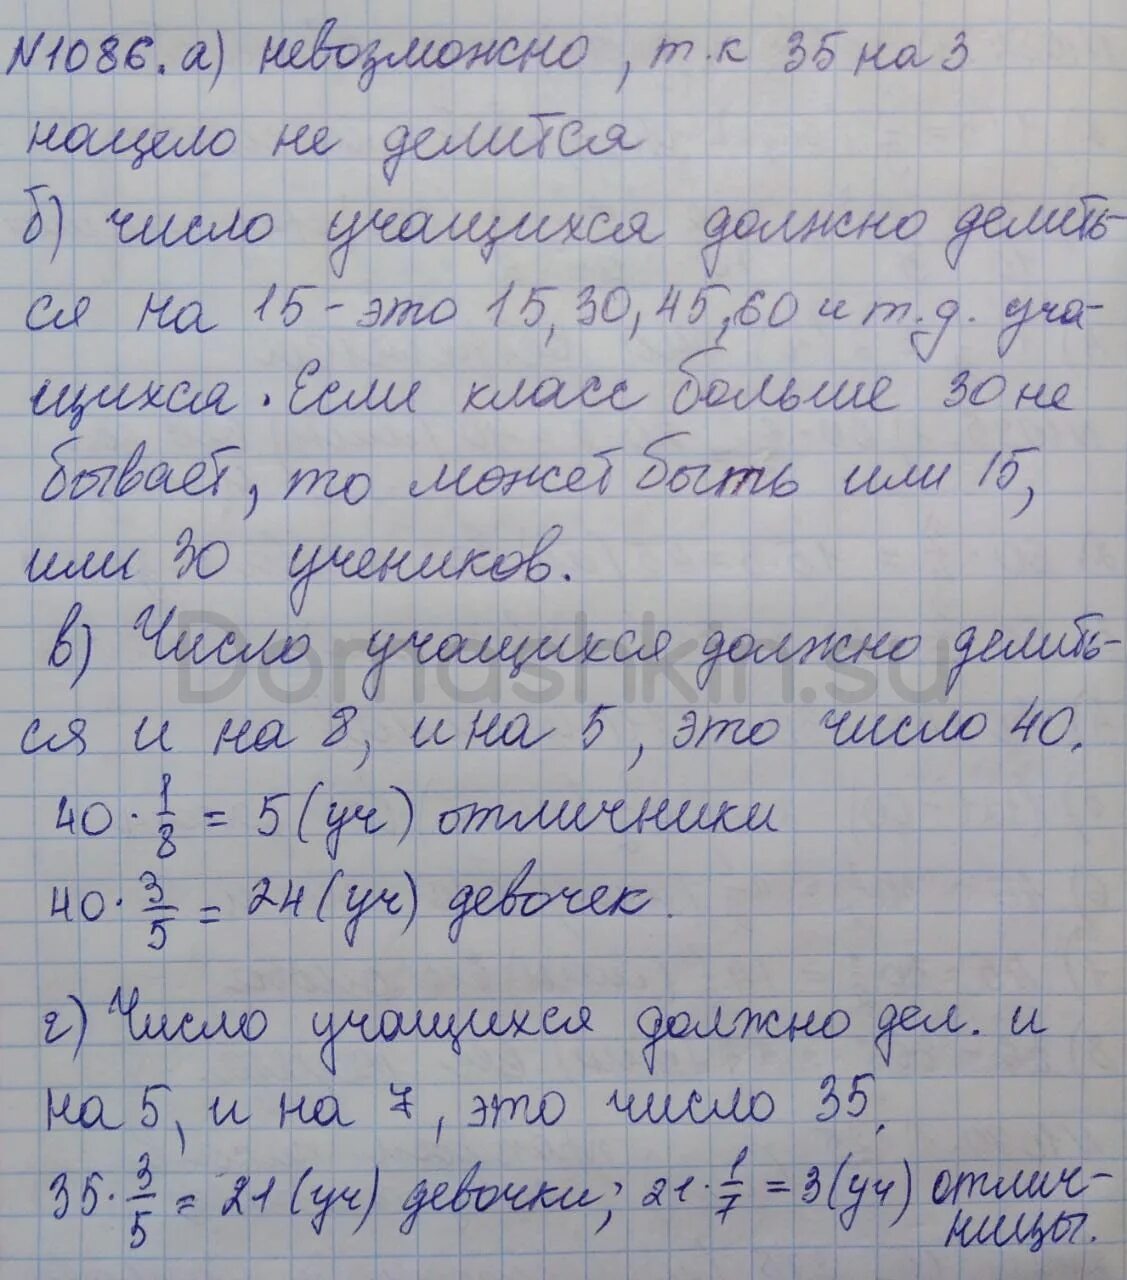 №1086. а) невозможно, т.к 35 на 3
нацело не делится
б) число учащихся должно делить-
ся на 15 - это 15, 30, 45, 60 и т.д. уча-
щихся. Если класс больше 30 не
бывает, то может быть или 15,
или 30 учеников.
в) Число учащихся должно делить-
ся и на 8, и на 5, это число 40.
40 · 1/8 = 5 (уч) отличники
40 · 3/5 = 24 (уч) девочек.
г) Число учащихся должно дел. и
на 5, и на 7, это число 35.
35 · 3/5 = 21 (уч) девочки; 21 · 1/7 = 3 (уч) отлич-
ницы.
Domashkin.su